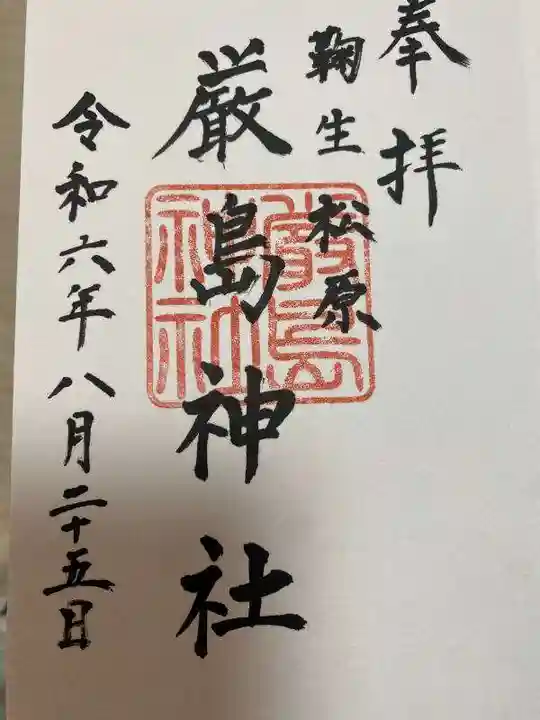 奉拝
鞠生松原
厳島神社
令和六年八月二十五日
嚴島
神社